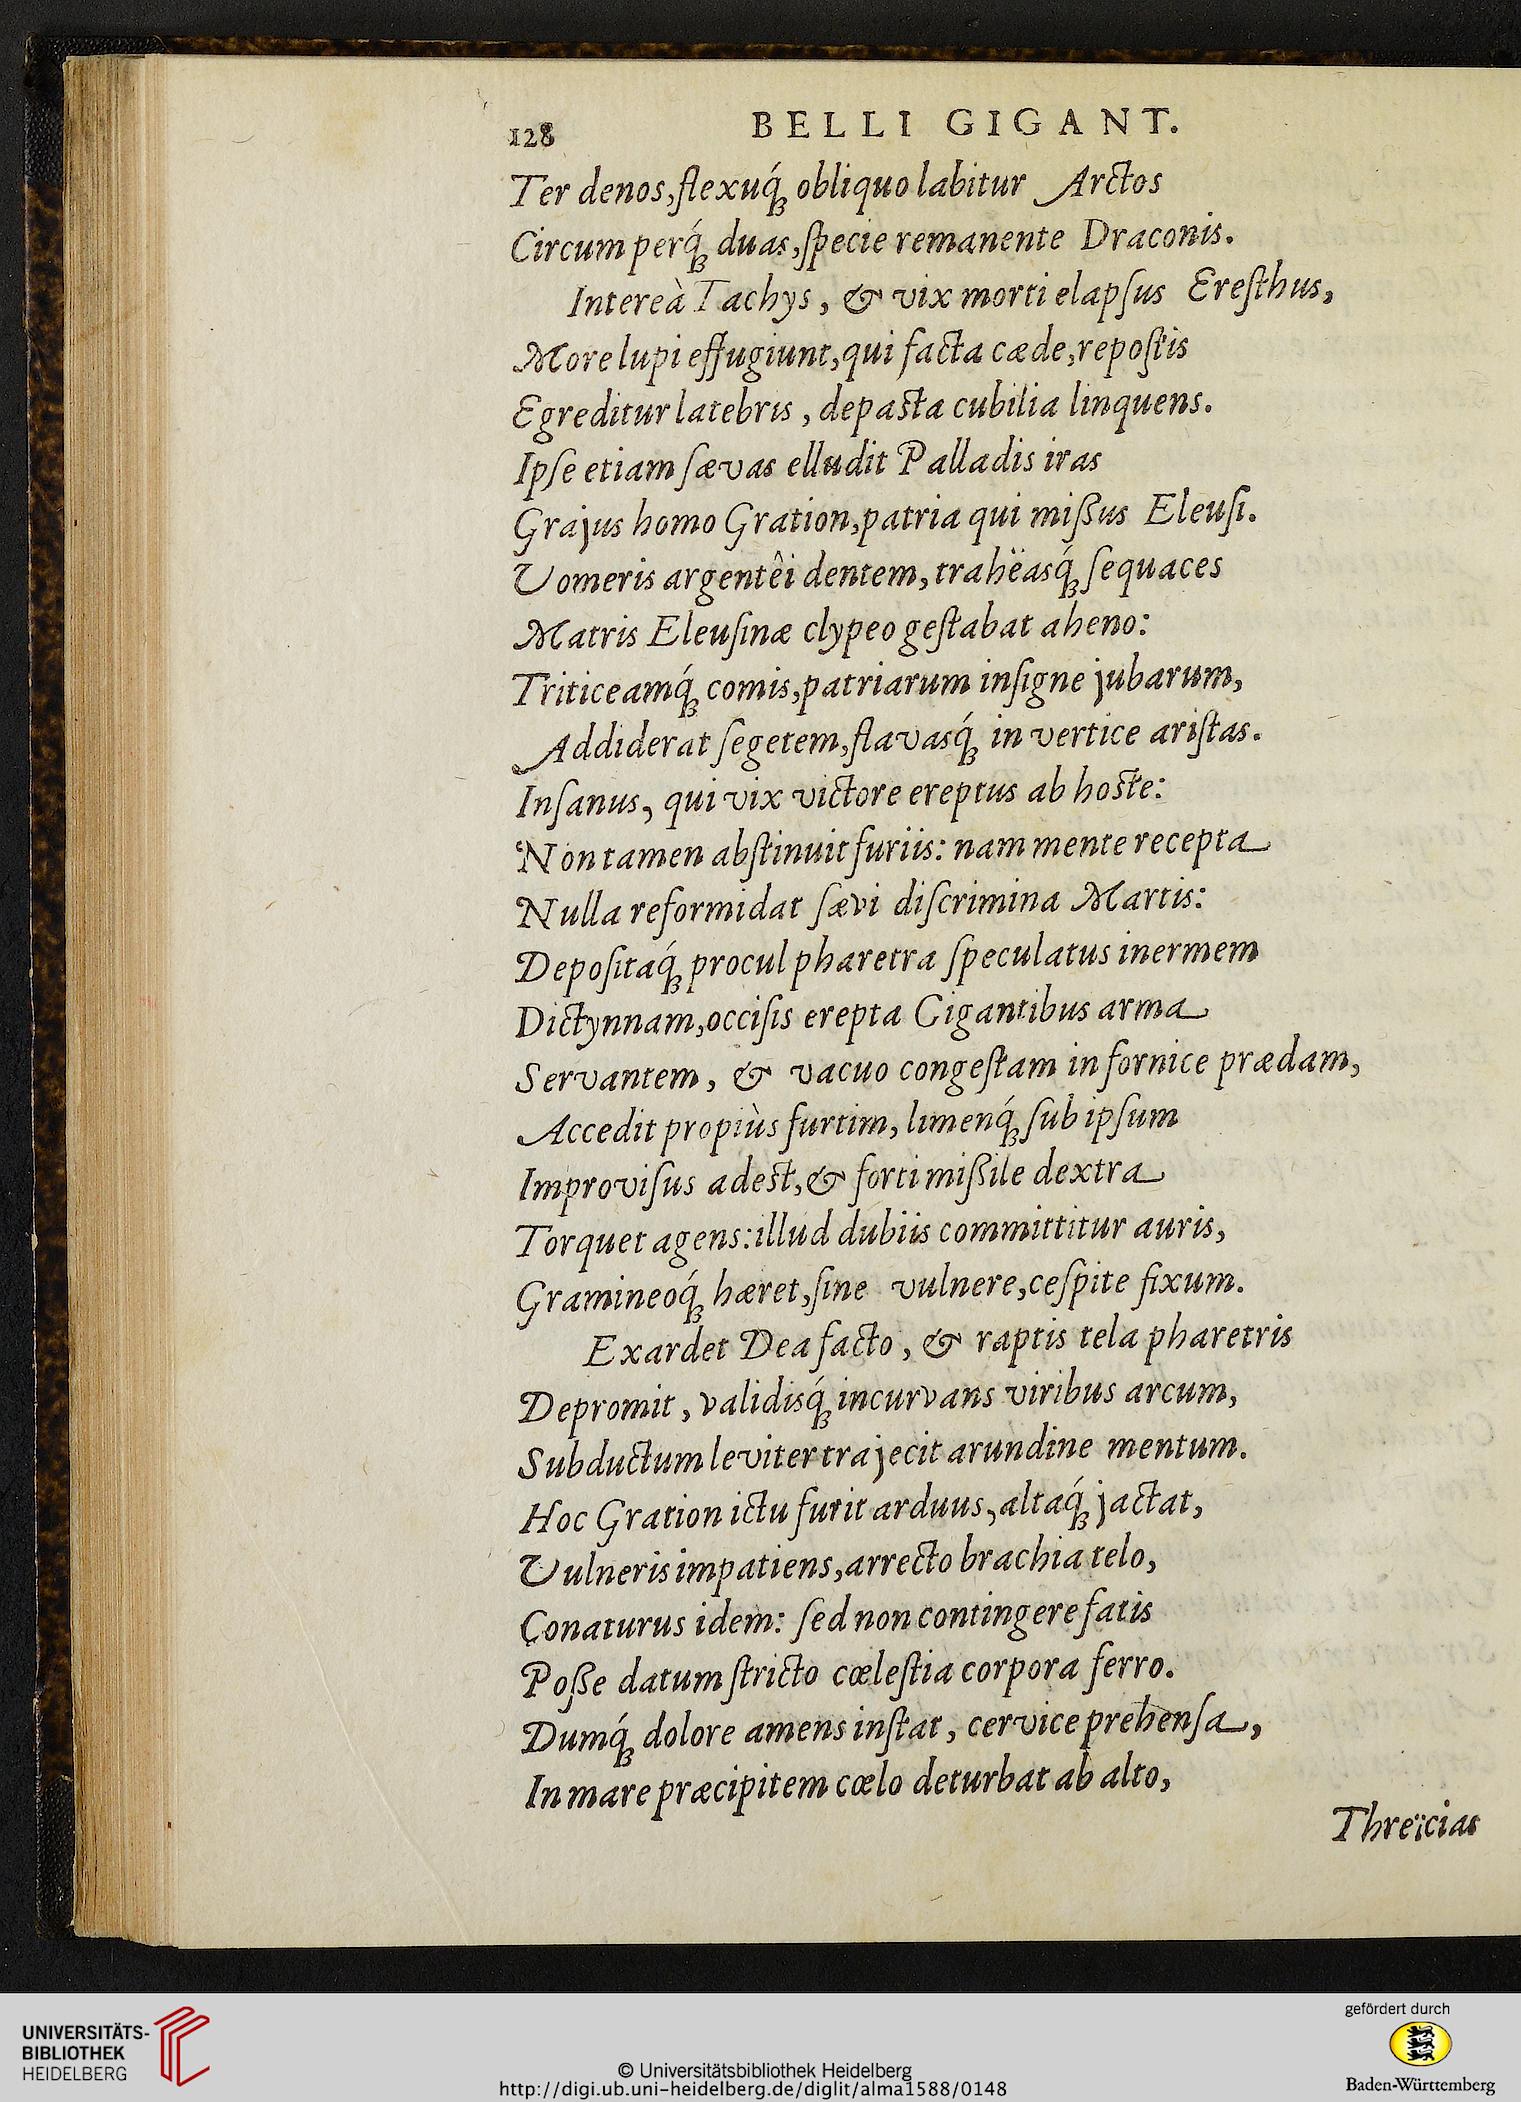 128 BELLI GIGANT.
Ter denos, flexuq́ꝫ obliquo labitur Arctos
Circum perq́ꝫ duas, ſpecie remanente Draconis.
Intereà Tachys, & vix morti elapſus Ereſthus,
More lupi effugiunt, qui facta cæde, repoſtis
Egreditur latebris, depasta cubilia linquens.
Ipſe etiam ſævas elludit Palladis iras
Grajus homo Gration, patria qui mißus Eleuſi.
Vomeris argentêi dentem, trahëasq́ꝫ ſequaces
Matris Eleuſinæ clypeo geſtabat aheno:
Triticeamq́ꝫ comis, patriarum inſigne jubarum,
Addiderat ſegetem, flavasq́ꝫ in vertice ariſtas.
Inſanus, qui vix victore ereptus ab hoste:
Non tamen abſtinuit furiis: nam mente recepta
Nulla reformidat ſævi diſcrimina Martis:
Depoſitaq́ꝫ procul pharetra ſpeculatus inermem
Dictynnam, occiſis erepta Gigantibus arma
Servantem, & vacuo congeſtam in fornice prædam,
Accedit propiùs furtim, limenq́ꝫ ſub ipſum
Improviſus adest, & forti mißile dextra
Torquet agens: illud dubiis committitur auris,
Gramineoq́ꝫ hæret, ſine vulnere, ceſpite fixum.
Exardet Dea facto, & raptis tela pharetris
Depromit, validisq́ꝫ incurvans viribus arcum,
Subductum leviter trajecit arundine mentum.
Hoc Gration ictu furit arduus, altaq́ꝫ jactat,
Vulneris impatiens, arrecto brachia telo,
Conaturus idem: ſed non contingere fatis
Poße datum ſtricto cœleſtia corpora ferro.
Dumq́ꝫ dolore amens inſtat, cervice prehenſa,
In mare præcipitem cœlo deturbat ab alto,
Threïcias
UNIVERSITÄTS-
BIBLIOTHEK
HEIDELBERG
© Universitätsbibliothek Heidelberg
http://digi.ub.uni-heidelberg.de/diglit/alma1588/0148
gefördert durch
Baden-Württemberg